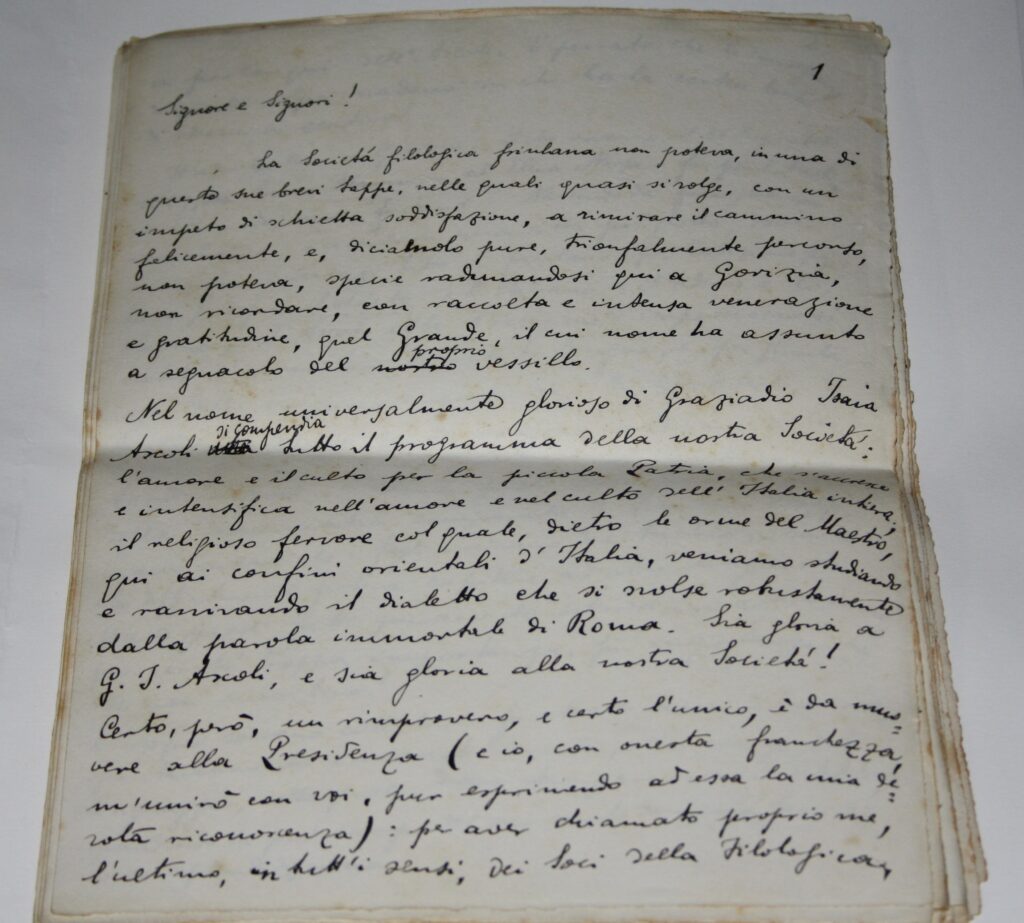 1
Signore e Signori!
La Società filologica friulana non poteva, in una di
queste sue brevi tappe, nelle quali quasi si volge, con un
impeto di schietta soddisfazione, a rimirare il cammino
felicemente, e, diciamolo pure, trionfalmente percorso,
non poteva, specie radunandosi qui a Gorizia,
non ricordare, con raccolta e intensa venerazione
e gratitudine, quel Grande, il cui nome ha assunto
a segnacolo del nostro proprio vessillo.
Nel nome universalmente glorioso di Graziadio Isaia
Ascoli si compendia tutto il programma della nostra Società:
l'amore e il culto per la piccola Patria, che s'accresce
e intensifica nell'amore e nel culto dell'Italia intera;
il religioso fervore col quale, dietro le orme del Maestro,
qui ai confini orientali d'Italia, veniamo studiando
e ravvivando il dialetto che si svolse robustamente
dalla parola immortale di Roma. Sia gloria a
G. I. Ascoli, e sia gloria alla nostra Società!
Certo, però, un rimprovero, e certo l'unico, è da muo=
vere alla Presidenza (e io, con onesta franchezza,
m'unirò con voi, pur esprimendo ad essa la mia de=
vota riconoscenza): per aver chiamato proprio me,
l'ultimo, in tutt'i sensi, dei Soci della Filologica,